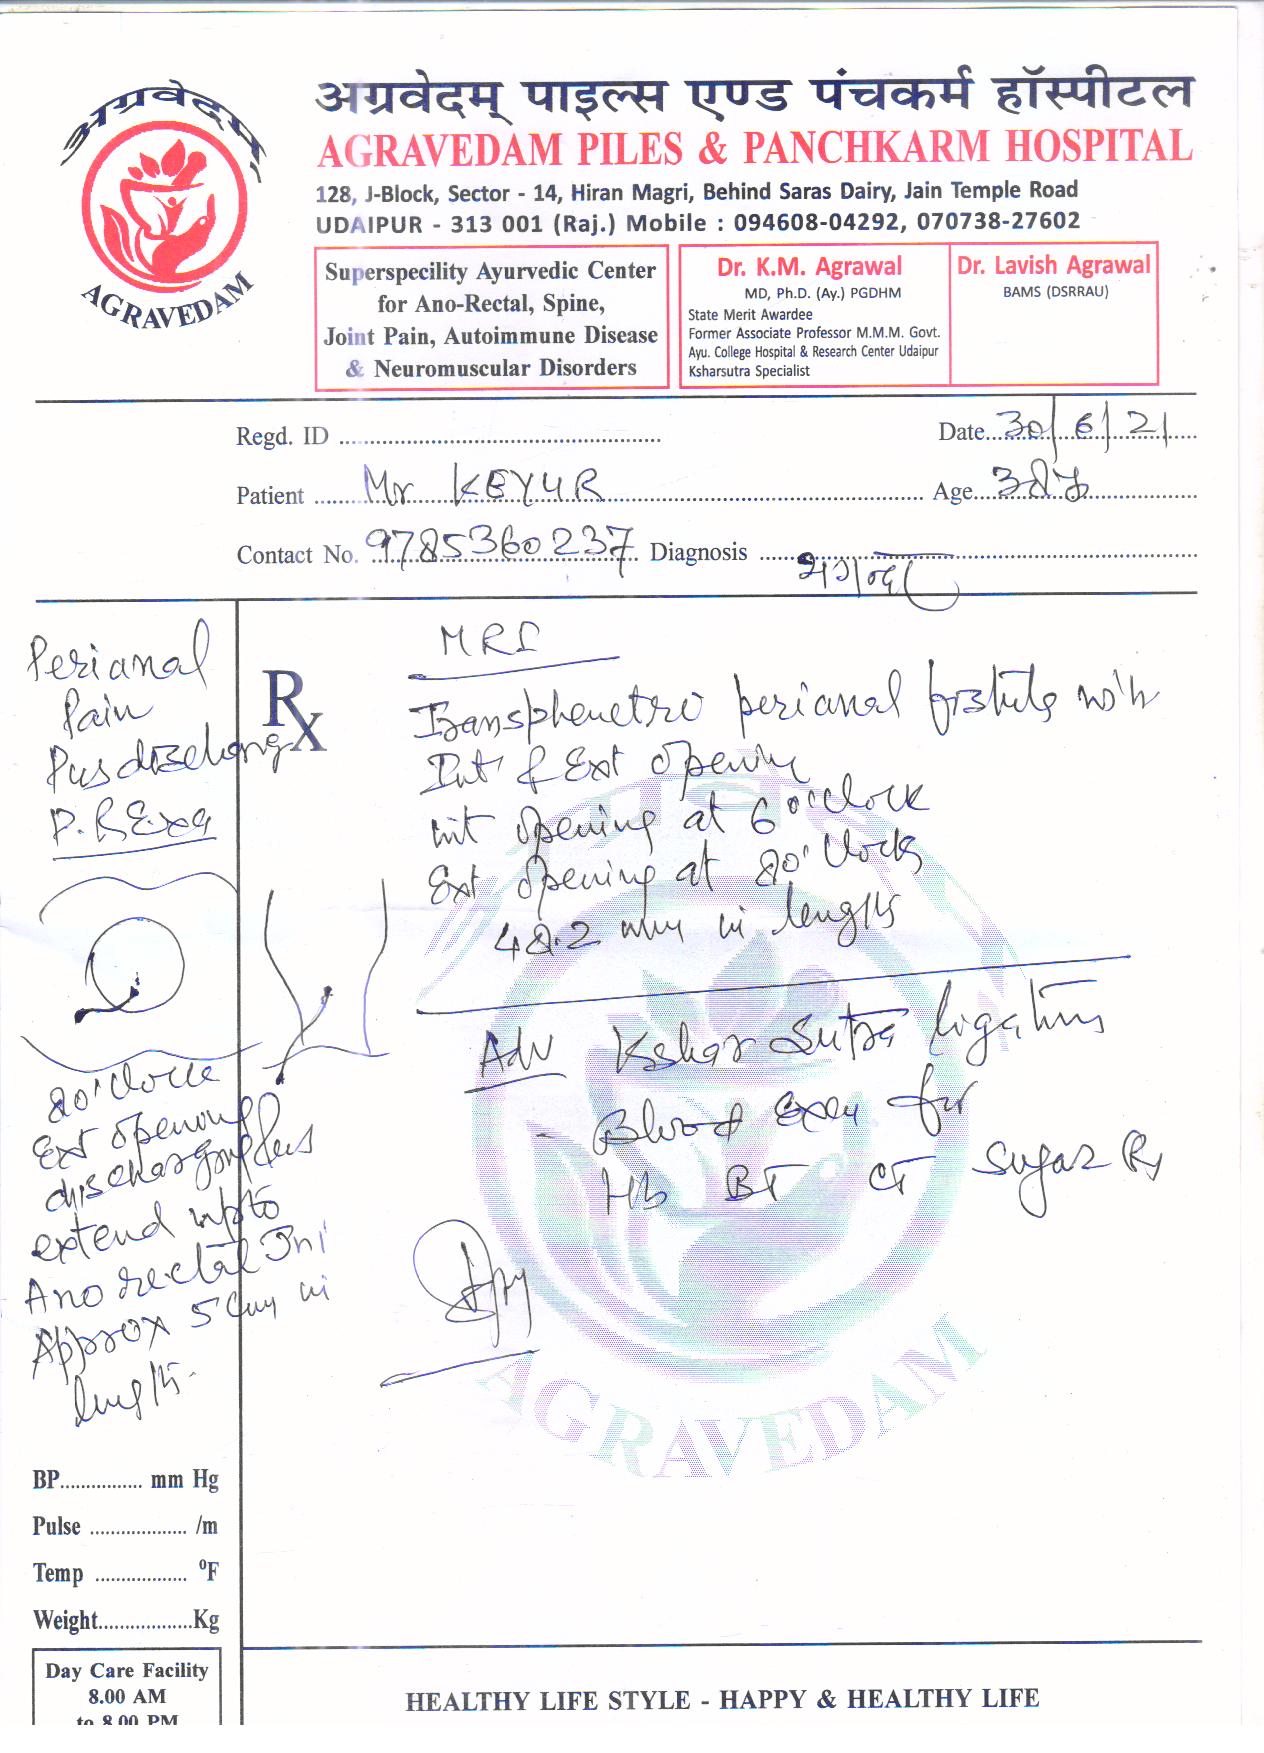 अग्रवेदम्
AGRAVEDAM
अग्रवेदम् पाइल्स एण्ड पंचकर्म हॉस्पीटल
AGRAVEDAM PILES & PANCHKARM HOSPITAL
128, J-Block, Sector - 14, Hiran Magri, Behind Saras Dairy, Jain Temple Road
UDAIPUR - 313 001 (Raj.) Mobile : 094608-04292, 070738-27602
Superspecility Ayurvedic Center
for Ano-Rectal, Spine,
Joint Pain, Autoimmune Disease
& Neuromuscular Disorders
Dr. K.M. Agrawal
MD, Ph.D. (Ay.) PGDHM
State Merit Awardee
Former Associate Professor M.M.M. Govt.
Ayu. College Hospital & Research Center Udaipur
Ksharsutra Specialist
Dr. Lavish Agrawal
BAMS (DSRRAU)
Regd. ID
Date 30/6/21
Patient Mr KEYUR
Age
Contact No. 9785360237 Diagnosis भगन्दर
Perianal
Pain
Pus discharg
P.R Exa
8 o'clock
Ext opening
discharging Pus
extend upto
Ano rectal
Approx 5 cm in
length
Rx
MRI
Transphenetric perianal fistula with
Int & Ext opening
int opening at 6 o'clock
Ext opening at 8 o'clock
48.2 mm in length
Adv Kshar Sutra ligation
- Blood Exam for
Hb BT CT Sugar
AGRAVEDAM
BP mm Hg
Pulse /m
Temp ⁰F
Weight Kg
Day Care Facility
8.00 AM
to 8.00 PM
HEALTHY LIFE STYLE - HAPPY & HEALTHY LIFE